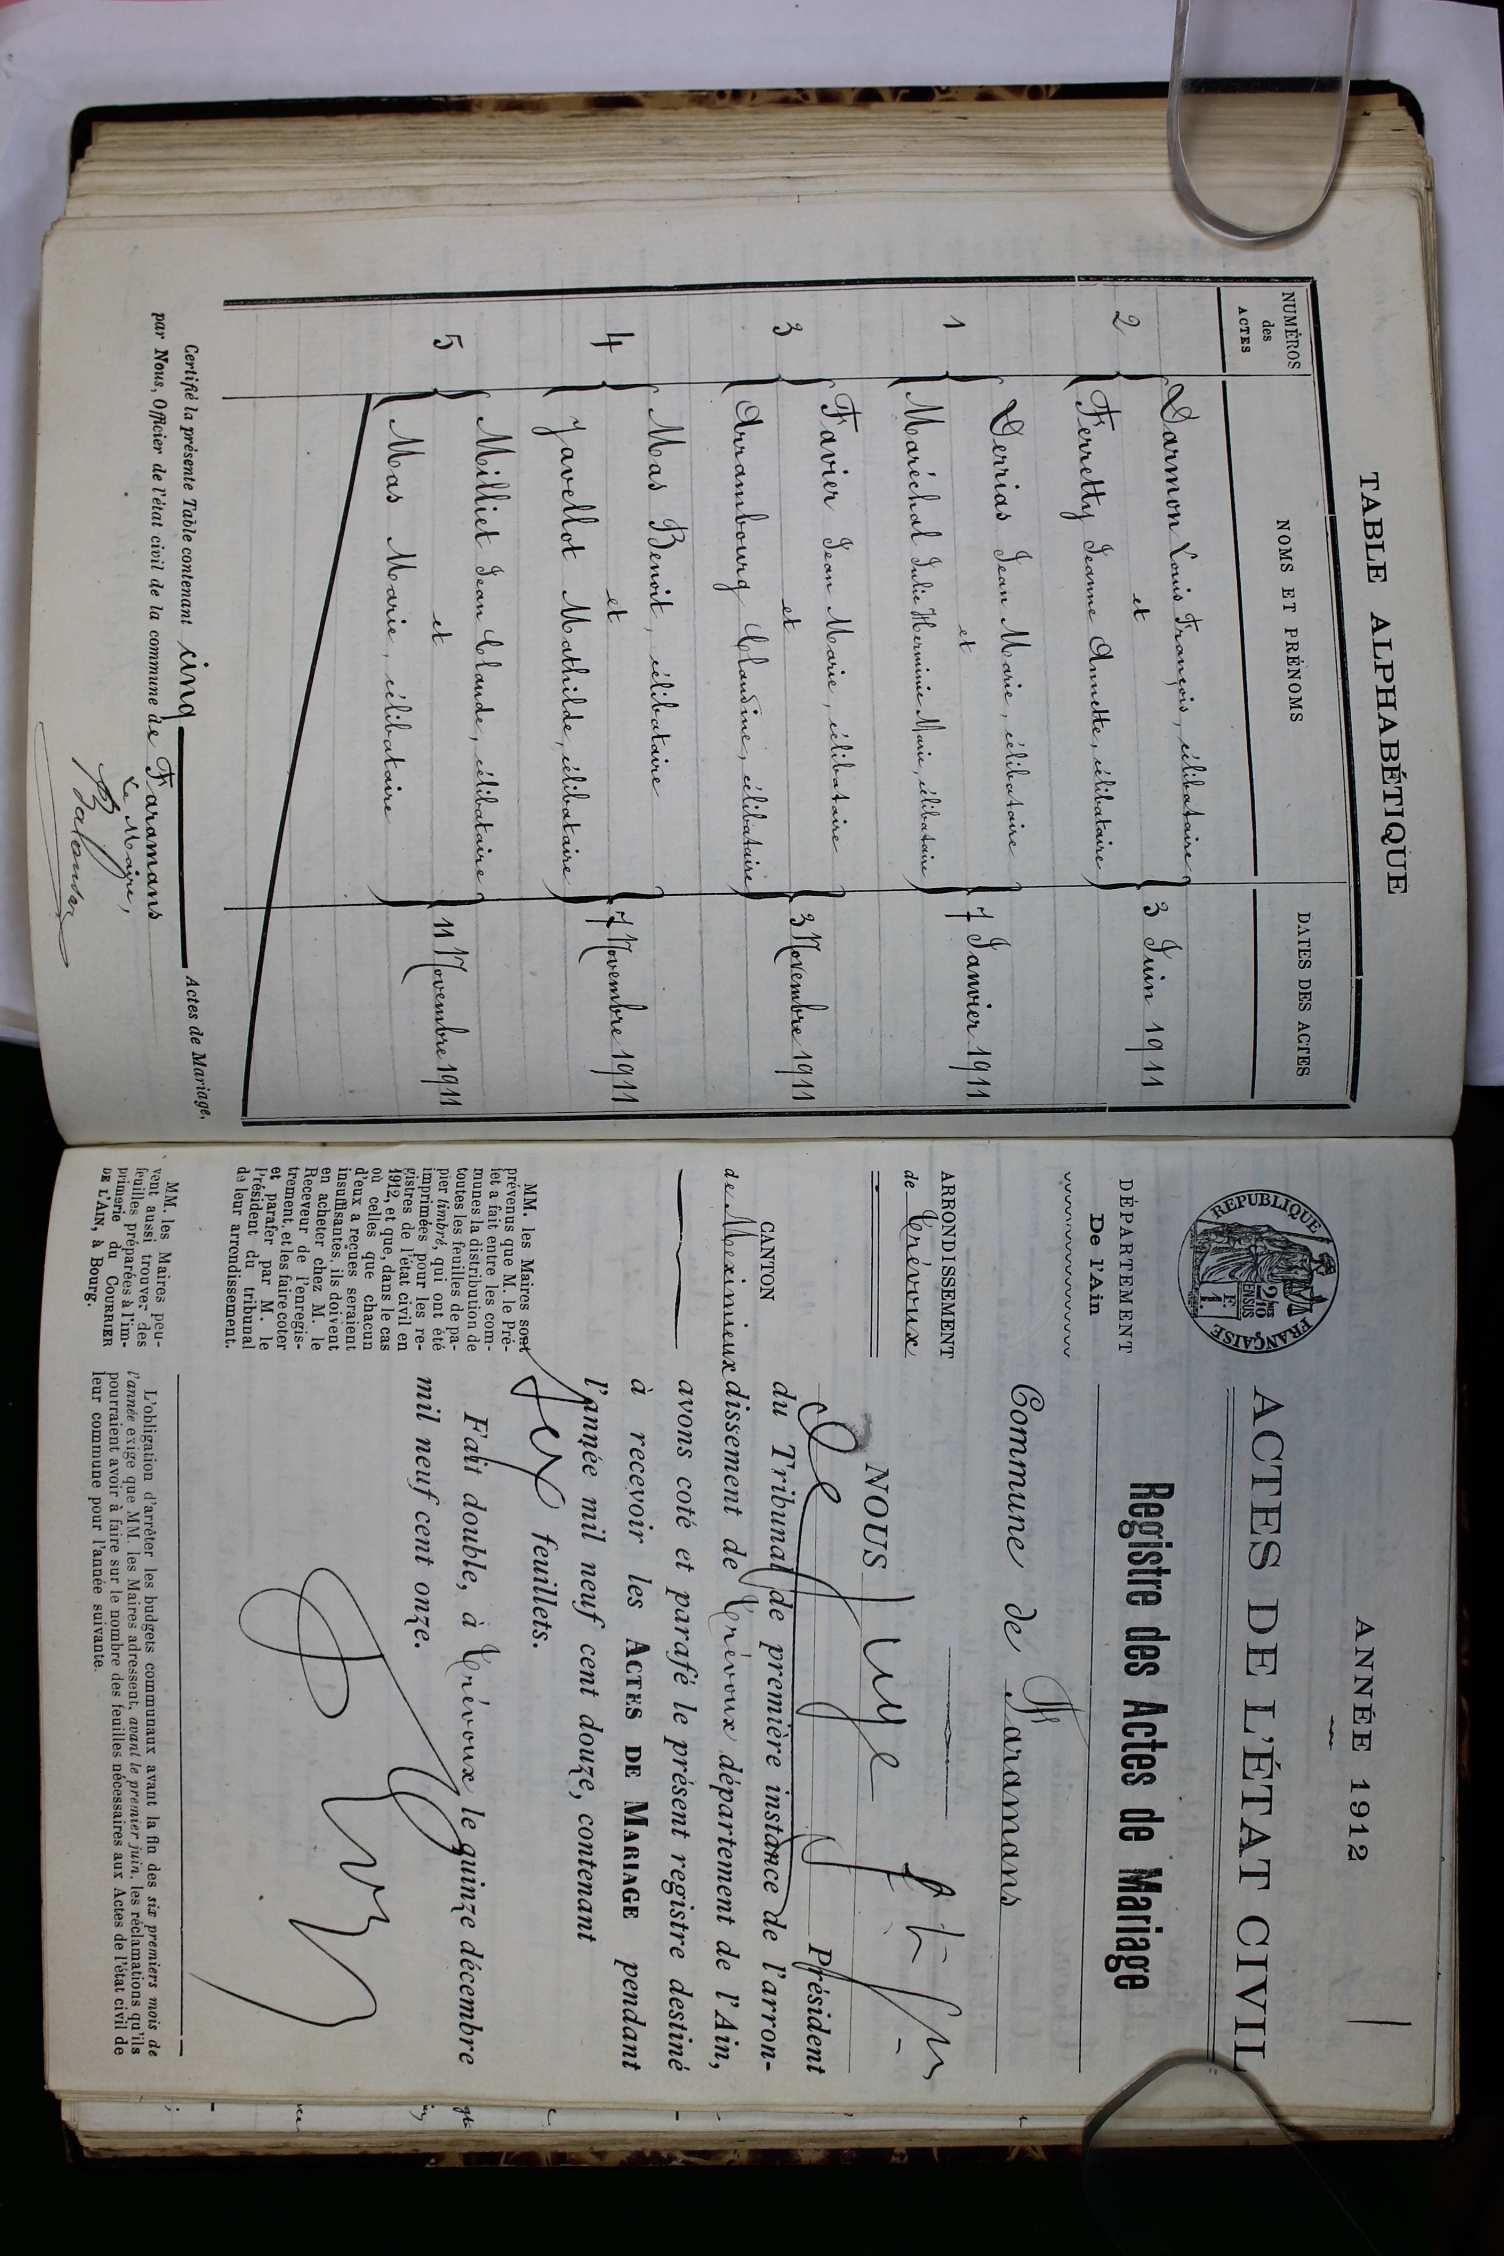 TABLE ALPHABÉTIQUE
NUMÉROS
des
ACTES
NOMS ET PRÉNOMS
DATES DES ACTES
Darmon Louis François, célibataire
2 et 3 Juin 1911
Ferretty Jeanne Annette, célibataire
Derrias Jean Marie, célibataire
1 et 7 Janvier 1911
Maréchal Julie Herminie Marie, célibataire
Favier Jean Marie, célibataire
3 et 3 Novembre 1911
Arrambourg Claudine, célibataire
Mas Benoit, célibataire
4 et 7 Novembre 1911
Javellot Mathilde, célibataire
Milliet Jean Claude, célibataire
5 et 11 Novembre 1911
Mas Marie, célibataire
Certifié la présente Table contenant cinq Actes de Mariage,
par Nous, Officier de l'état civil de la commune de Faramans
Le Maire,
ANNÉE 1912
RÉPUBLIQUE FRANÇAISE
2/10 EN SUS
1 F.
ACTES DE L'ÉTAT CIVIL
DÉPARTEMENT
De l'Ain
Registre des Actes de Mariage
Commune de Faramans
ARRONDISSEMENT
de Trévoux
CANTON
de Meximieux
MM. les Maires sont
prévenus que M. le Pré-
fet a fait entre les com-
munes la distribution de
toutes les feuilles de pa-
pier timbré, qui ont été
imprimées pour les re-
gistres de l'état civil en
1912, et que, dans le cas
où celles que chacun
d'eux a reçues seraient
insuffisantes, ils doivent
en acheter chez M. le
Receveur de l'enregis-
trement, et les faire coter
et parafer par M. le
Président du tribunal
de leur arrondissement.
MM. les Maires peu-
vent aussi trouver des
feuilles préparées à l'im-
primerie du COURRIER
DE L'AIN, à Bourg.
NOUS Juge
Président
du Tribunal de première instance de l'arron-
dissement de Trévoux département de l'Ain,
avons coté et parafé le présent registre destiné
à recevoir les ACTES DE MARIAGE pendant
l'année mil neuf cent douze, contenant
feuillets.
Fait double, à Trévoux le quinze décembre
mil neuf cent onze.
L'obligation d'arrêter les budgets communaux avant la fin des six premiers mois de
l'année exige que MM. les Maires adressent, avant le premier juin, les réclamations qu'ils
pourraient avoir à faire sur le nombre des feuilles nécessaires aux Actes de l'état civil de
leur commune pour l'année suivante.